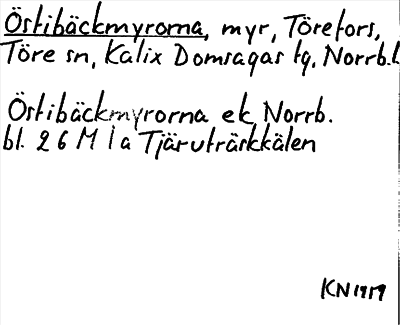 Östibäckmyrorna, myr, Törefors,
Töre sn, Kalix Domsagas tg, Norrb.l
Östibäckmyrorna ek Norrb.
bl. 26 M 1a Tjäruträskkälen
KN 1979